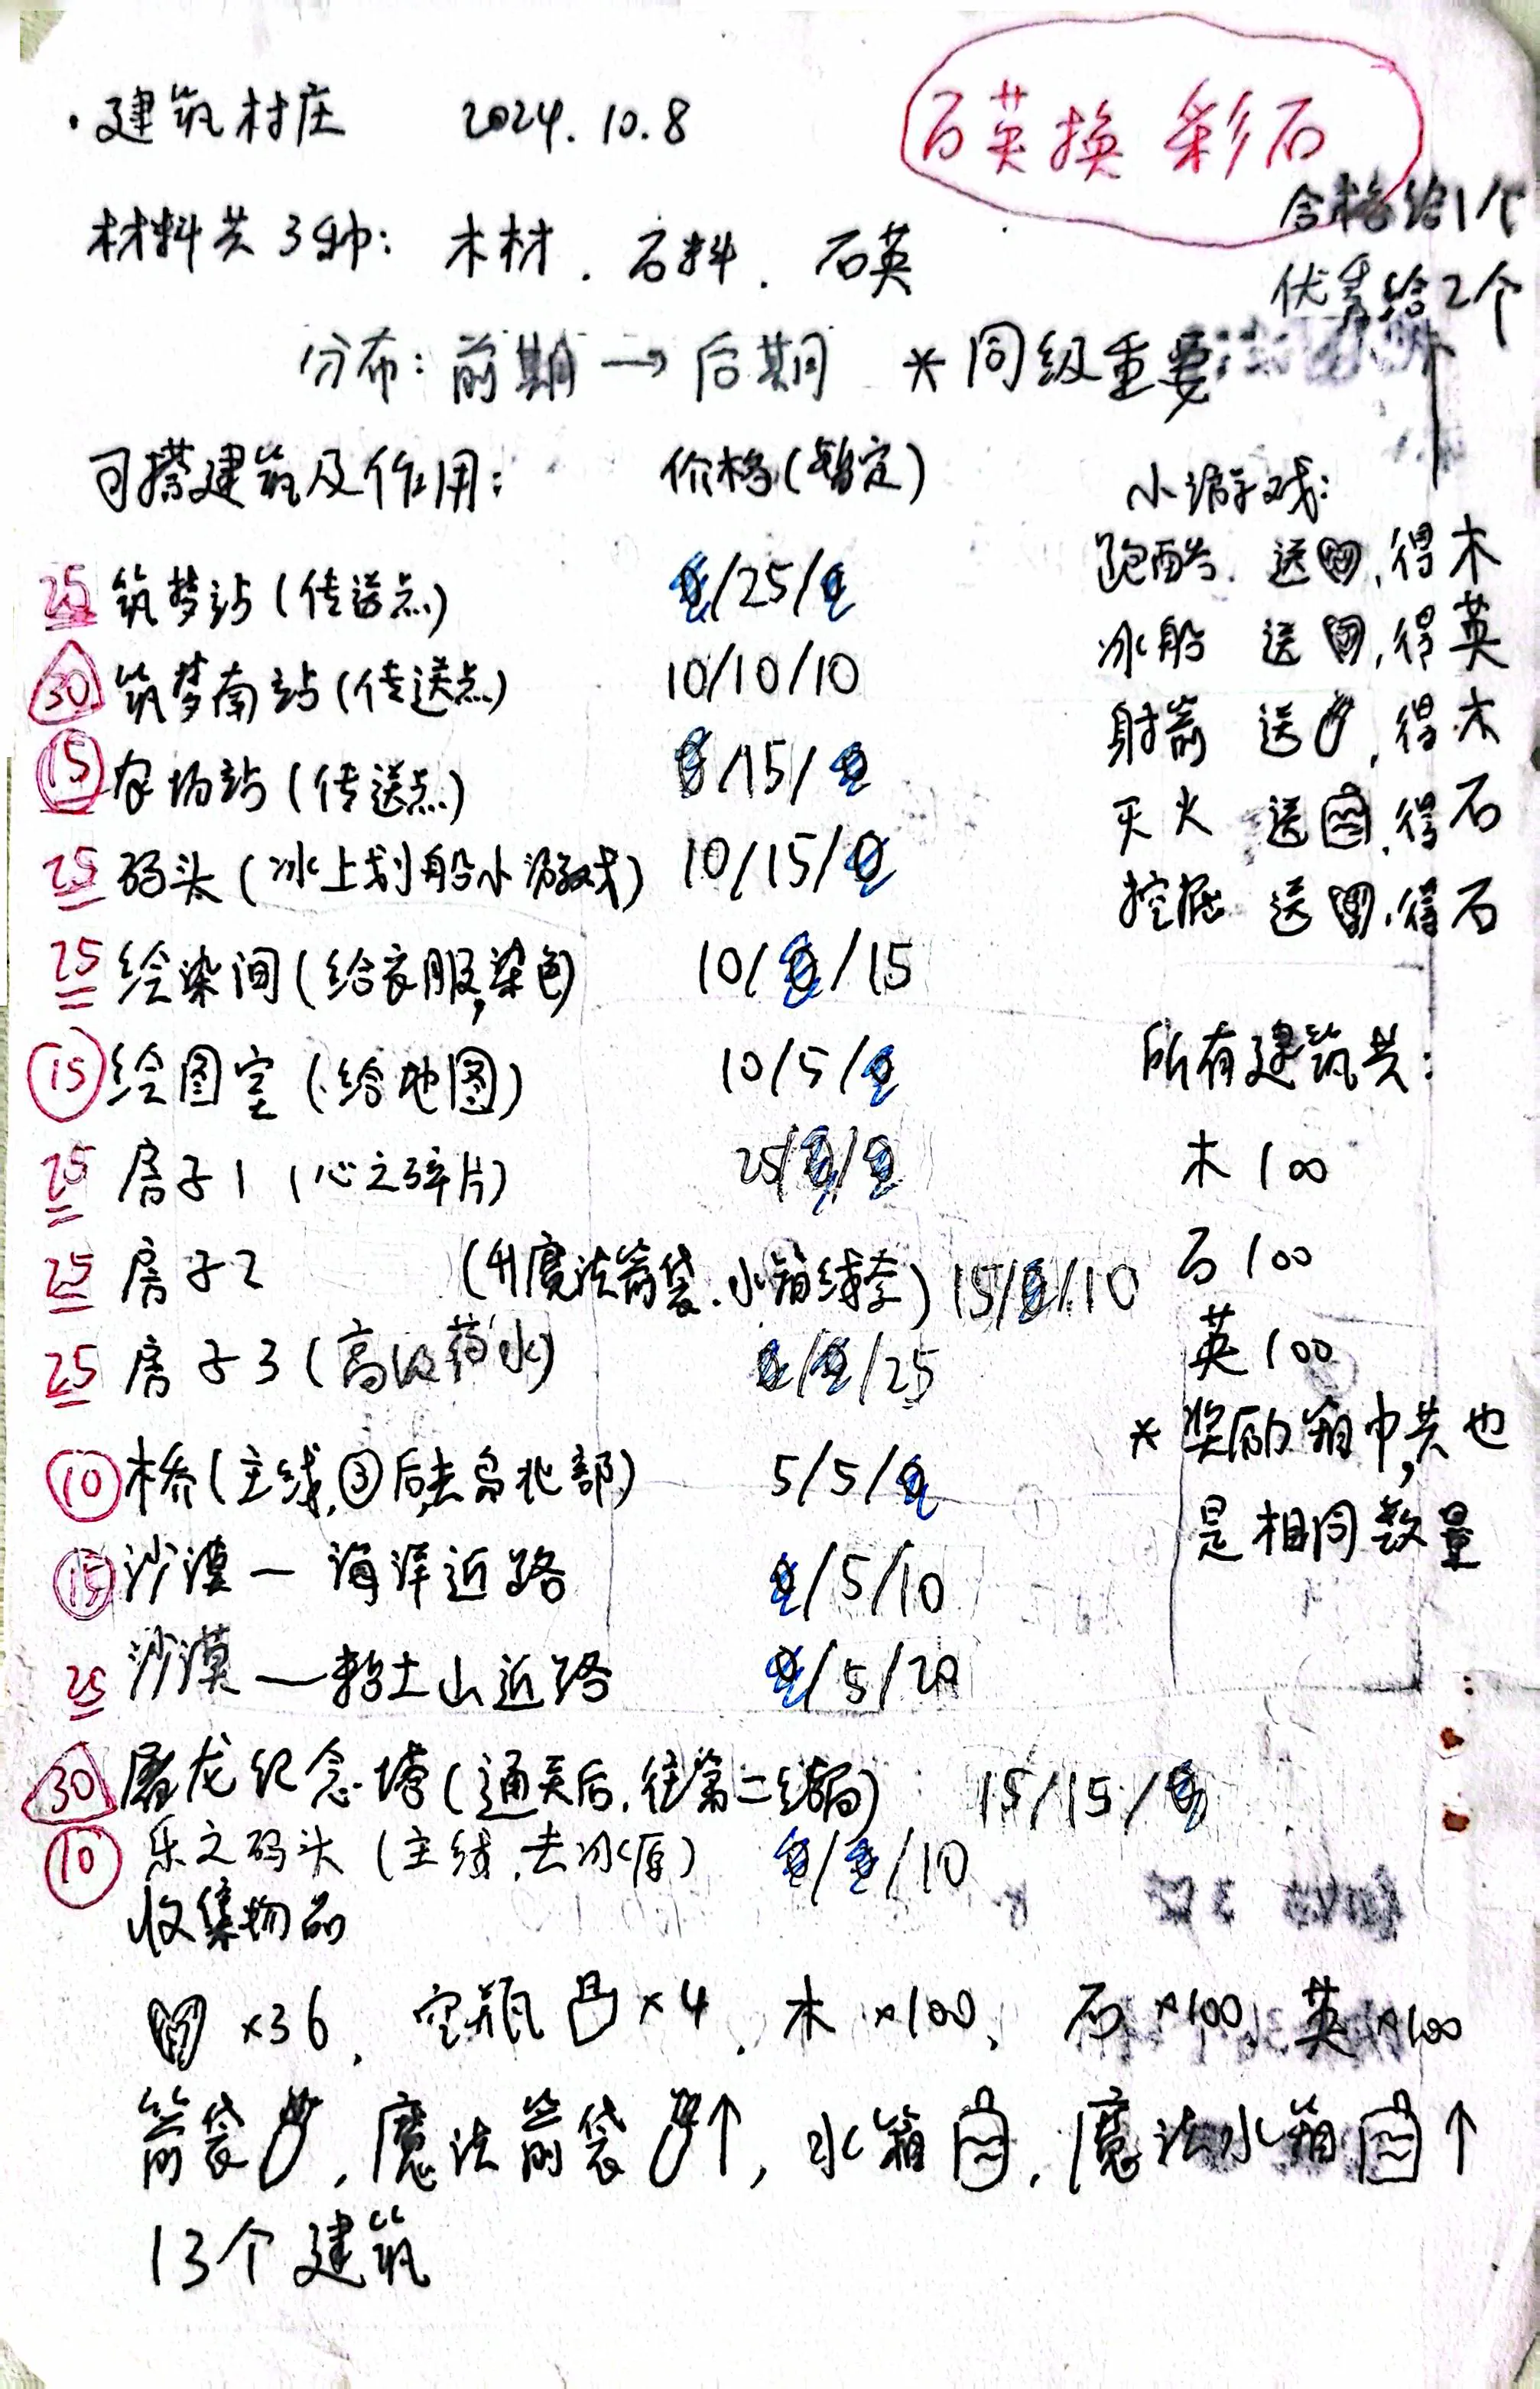 ·建筑村庄 2024.10.8
石英换彩石
合格给1个
优秀给2个
材料共3种：木材．石料．石英
分布：前期→后期 *同级重要
可搭建筑及作用： 价格(暂定)
25 筑梦站(传送点) 0/25/0
30 筑梦南站(传送点) 10/10/10
15 农场站(传送点) 0/15/0
25 码头(冰上划船小游戏) 10/15/0
25 绘染间(给衣服染色) 10/0/15
15 绘图室(给地图) 10/5/0
25 房子1(心之碎片) 25/0/0
25 房子2 (升魔法箭袋.水箱线索) 15/0/10
25 房子3(高级药水) 0/0/25
10 木桥(主线,③后去岛北部) 5/5/0
15 沙漠—海洋近路 0/5/10
25 沙漠—粘土山近路 0/5/20
30 屠龙纪念塔(通关后,往第二结局) 15/15/0
10 乐之码头(主线,去冰原) 0/0/10
小游戏：
跑酷．送,得木
冰船 送,得英
射箭 送,得木
灭火 送,得石
挖掘 送,得石
所有建筑共：
木100
石100
英100
*奖励箱中共也
是相同数量
收集物品
×36，空瓶×4．木×100、石×100、英×100
箭袋，魔法箭袋↑，水箱，魔法水箱↑
13个建筑